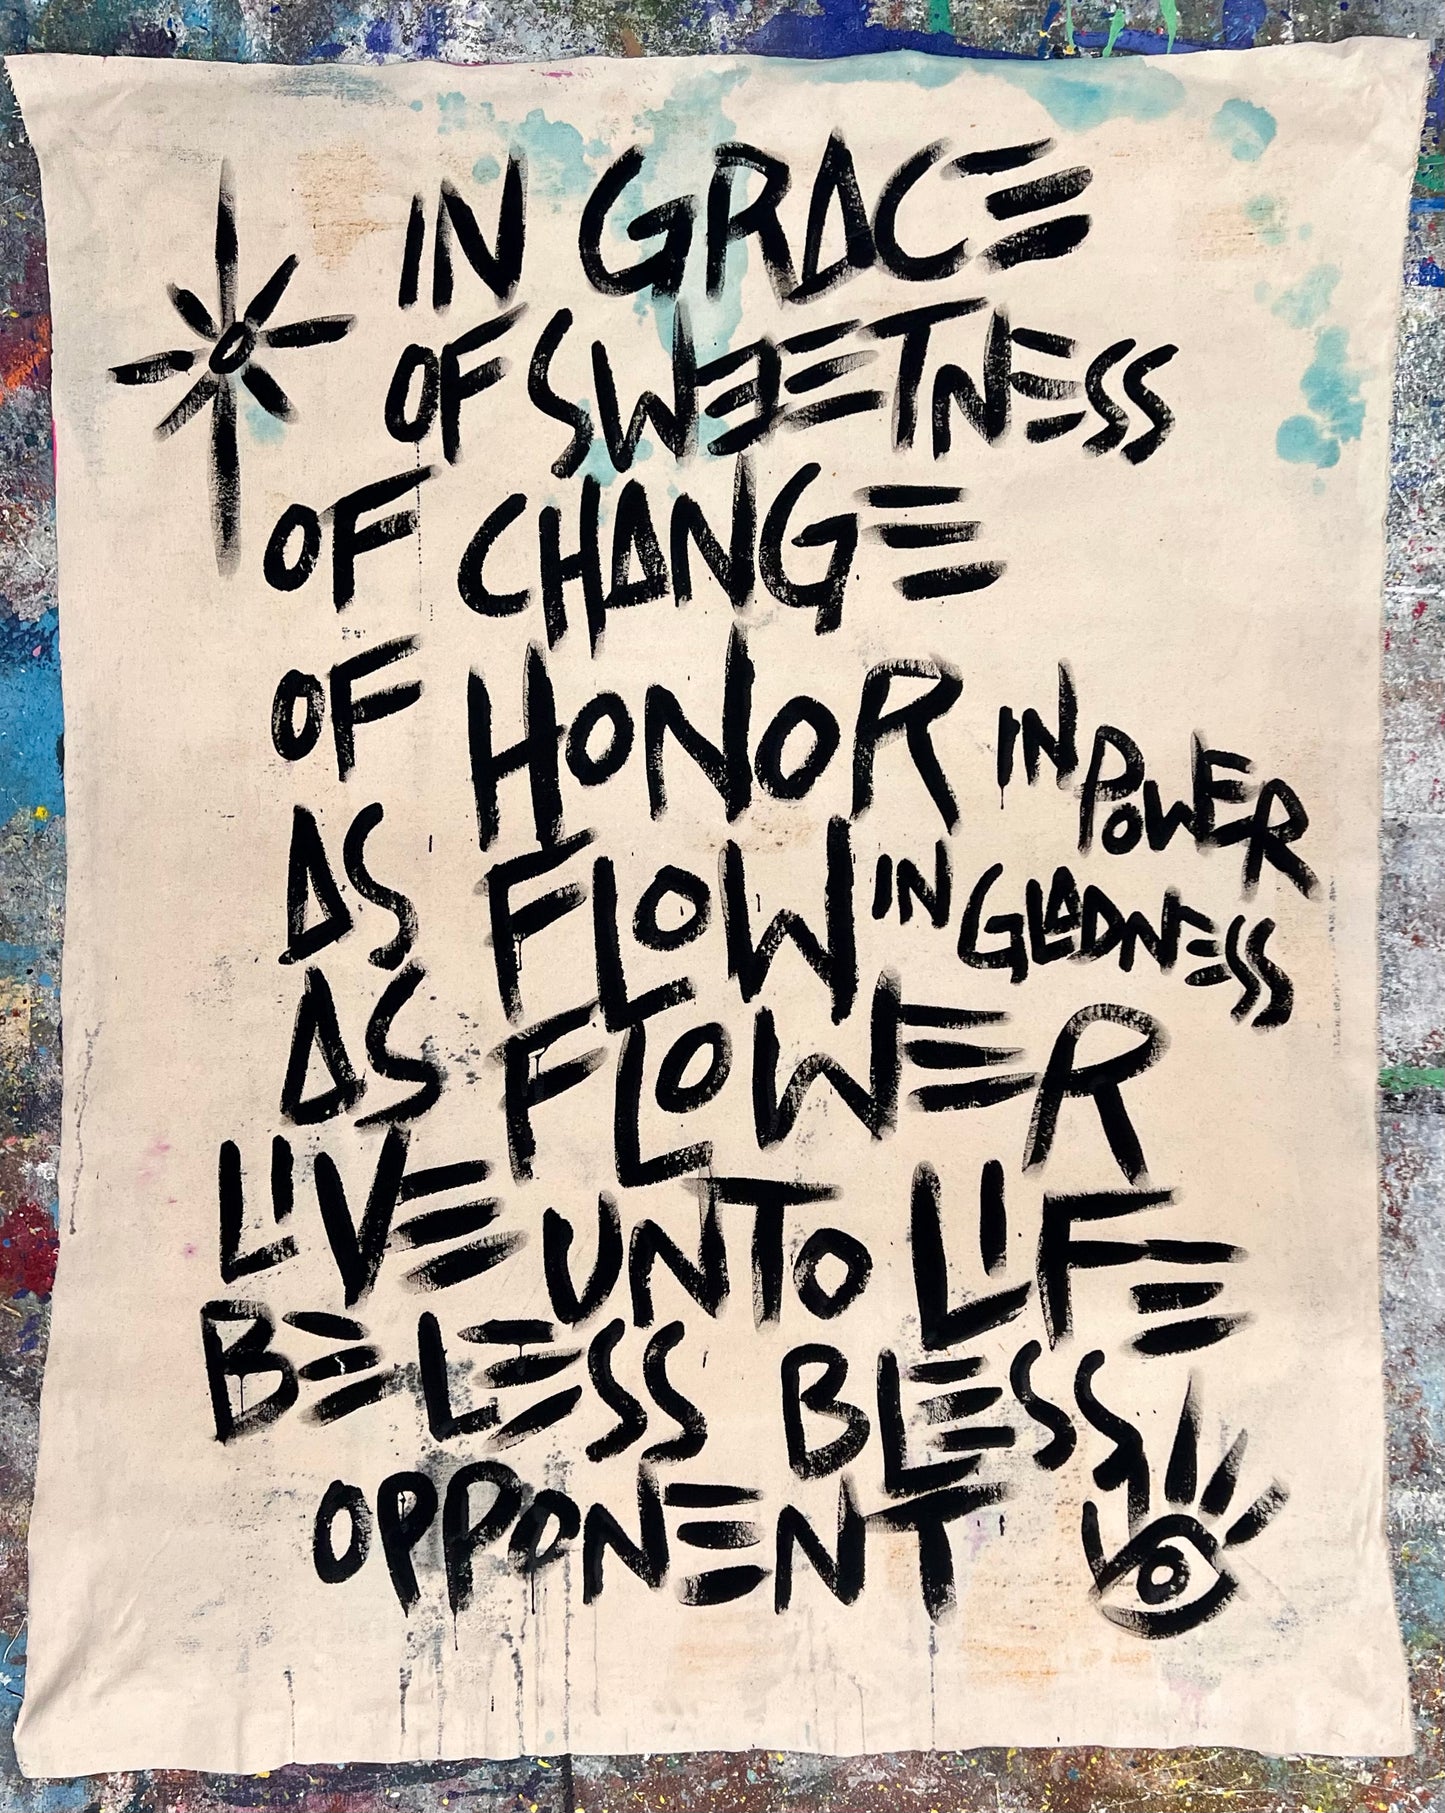 IN GRACE
OF SWEETNESS
OF CHANGE
OF HONOR IN POWER
AS FLOW IN GLADNESS
AS FLOWER
LIVE UNTO LIFE
BE LESS BLESS
OPPONENT